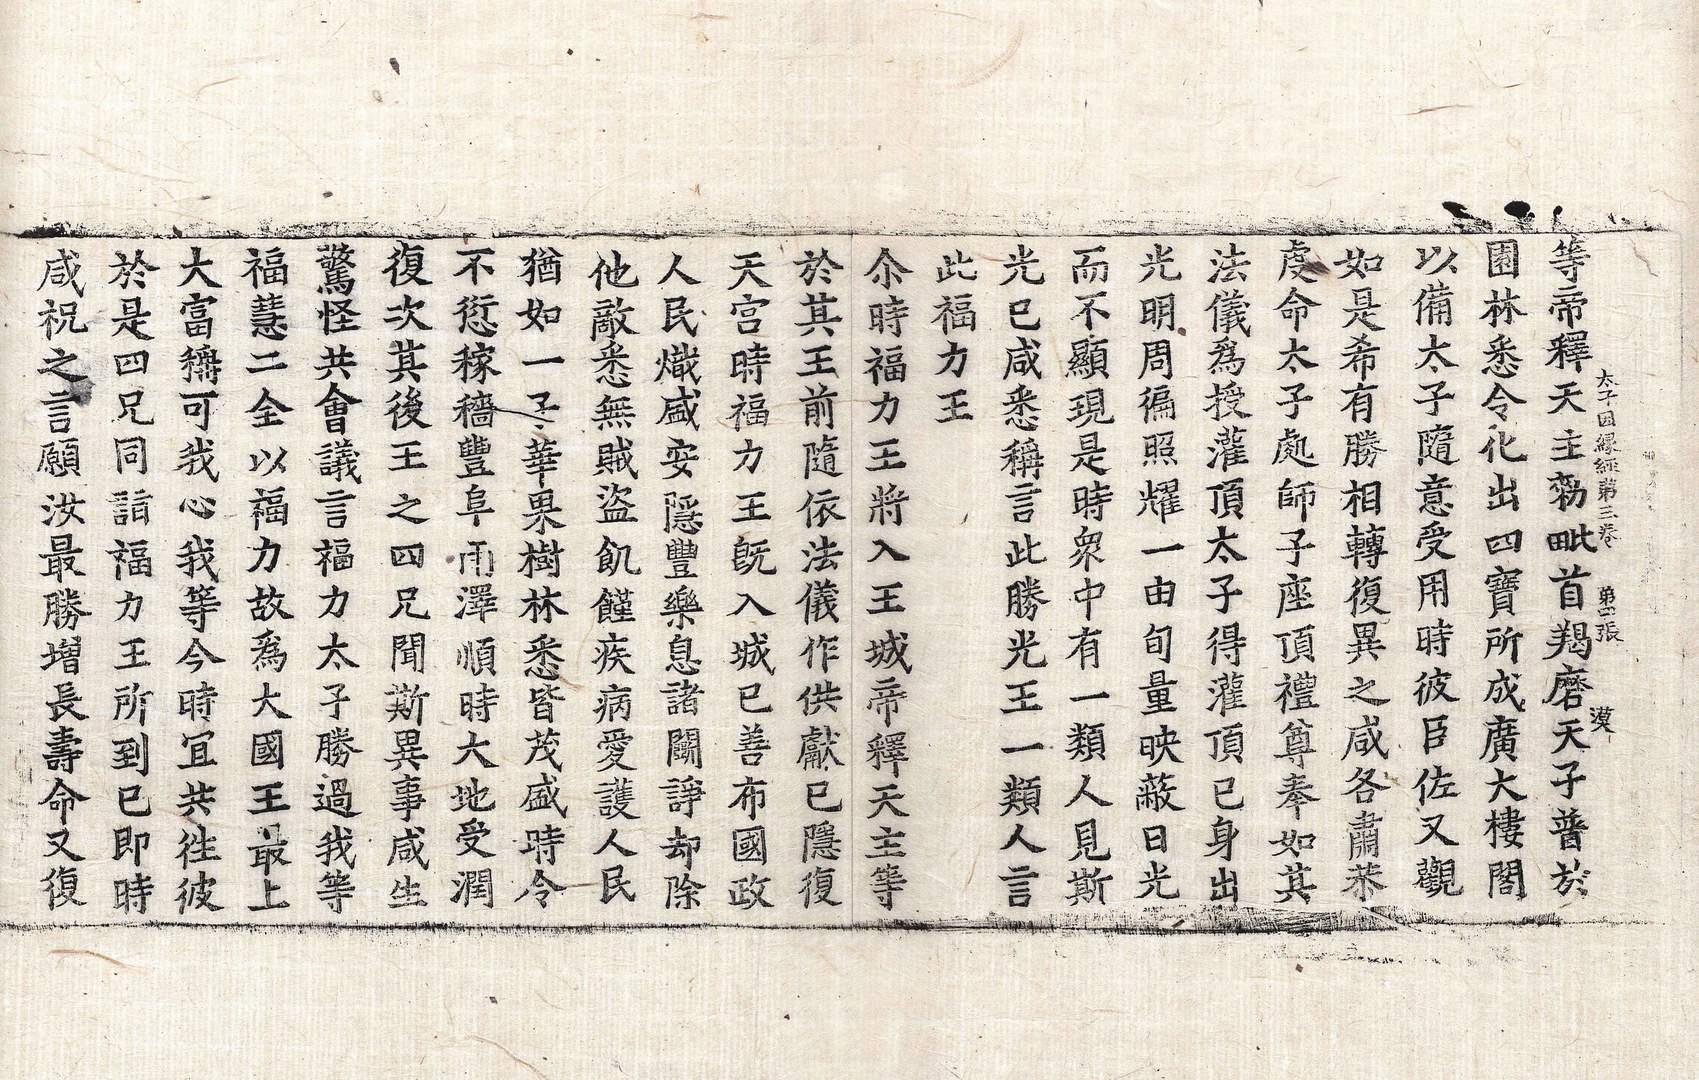 太子因緣經第三卷 第四張 漠
等帝釋天主勑毗首羯磨天子普於
園林悉令化出四寶所成廣大樓閣
以備太子隨意受用時彼臣佐又觀
如是希有勝相轉復異之咸各肅恭
虔命太子處師子座頂禮尊奉如其
法儀爲授灌頂太子得灌頂已身出
光明周徧照耀一由旬量映蔽日光
而不顯現是時衆中有一類人見斯
光已咸悉稱言此勝光王一類人言
此福力王
尒時福力王將入王城帝釋天主等
於其王前隨依法儀作供獻已隱復
天宮時福力王旣入城已善布國政
人民熾盛安隱豐樂息諸鬪諍却除
他敵悉無賊盜飢饉疾病愛護人民
猶如一子華果樹林悉皆茂盛時令
不愆稼穡豐阜雨澤順時大地受潤
復次其後王之四兄聞斯異事咸生
驚怪共會議言福力太子勝過我等
福慧二全以福力故爲大國王最上
大富稱可我心我等今時宜共徃彼
於是四兄同詣福力王所到已即時
咸祝之言願汝最勝增長壽命又復